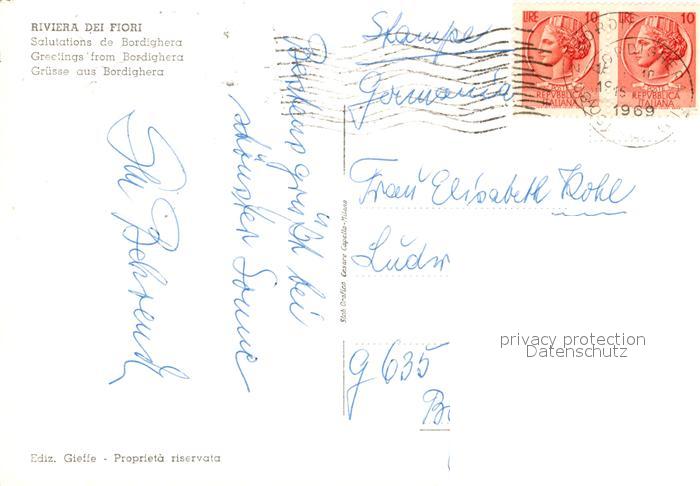 RIVIERA DEI FIORI
Salutations de Bordighera
Greetings from Bordighera
Grüsse aus Bordighera
Bestens grüßt bei
schönster Sonne
Ihr Behrend
Stampe
Germania
Frau Elisabeth Kohl
Ludw
G 635
B
LIRE 10
LIRE 10
REPVBBLICA
ITALIANA
REPVBBLICA
ITALIANA
1969
Stab. Grafico Cesare Capello-Milano
privacy protection
Datenschutz
Ediz. Gieffe - Proprietà riservata